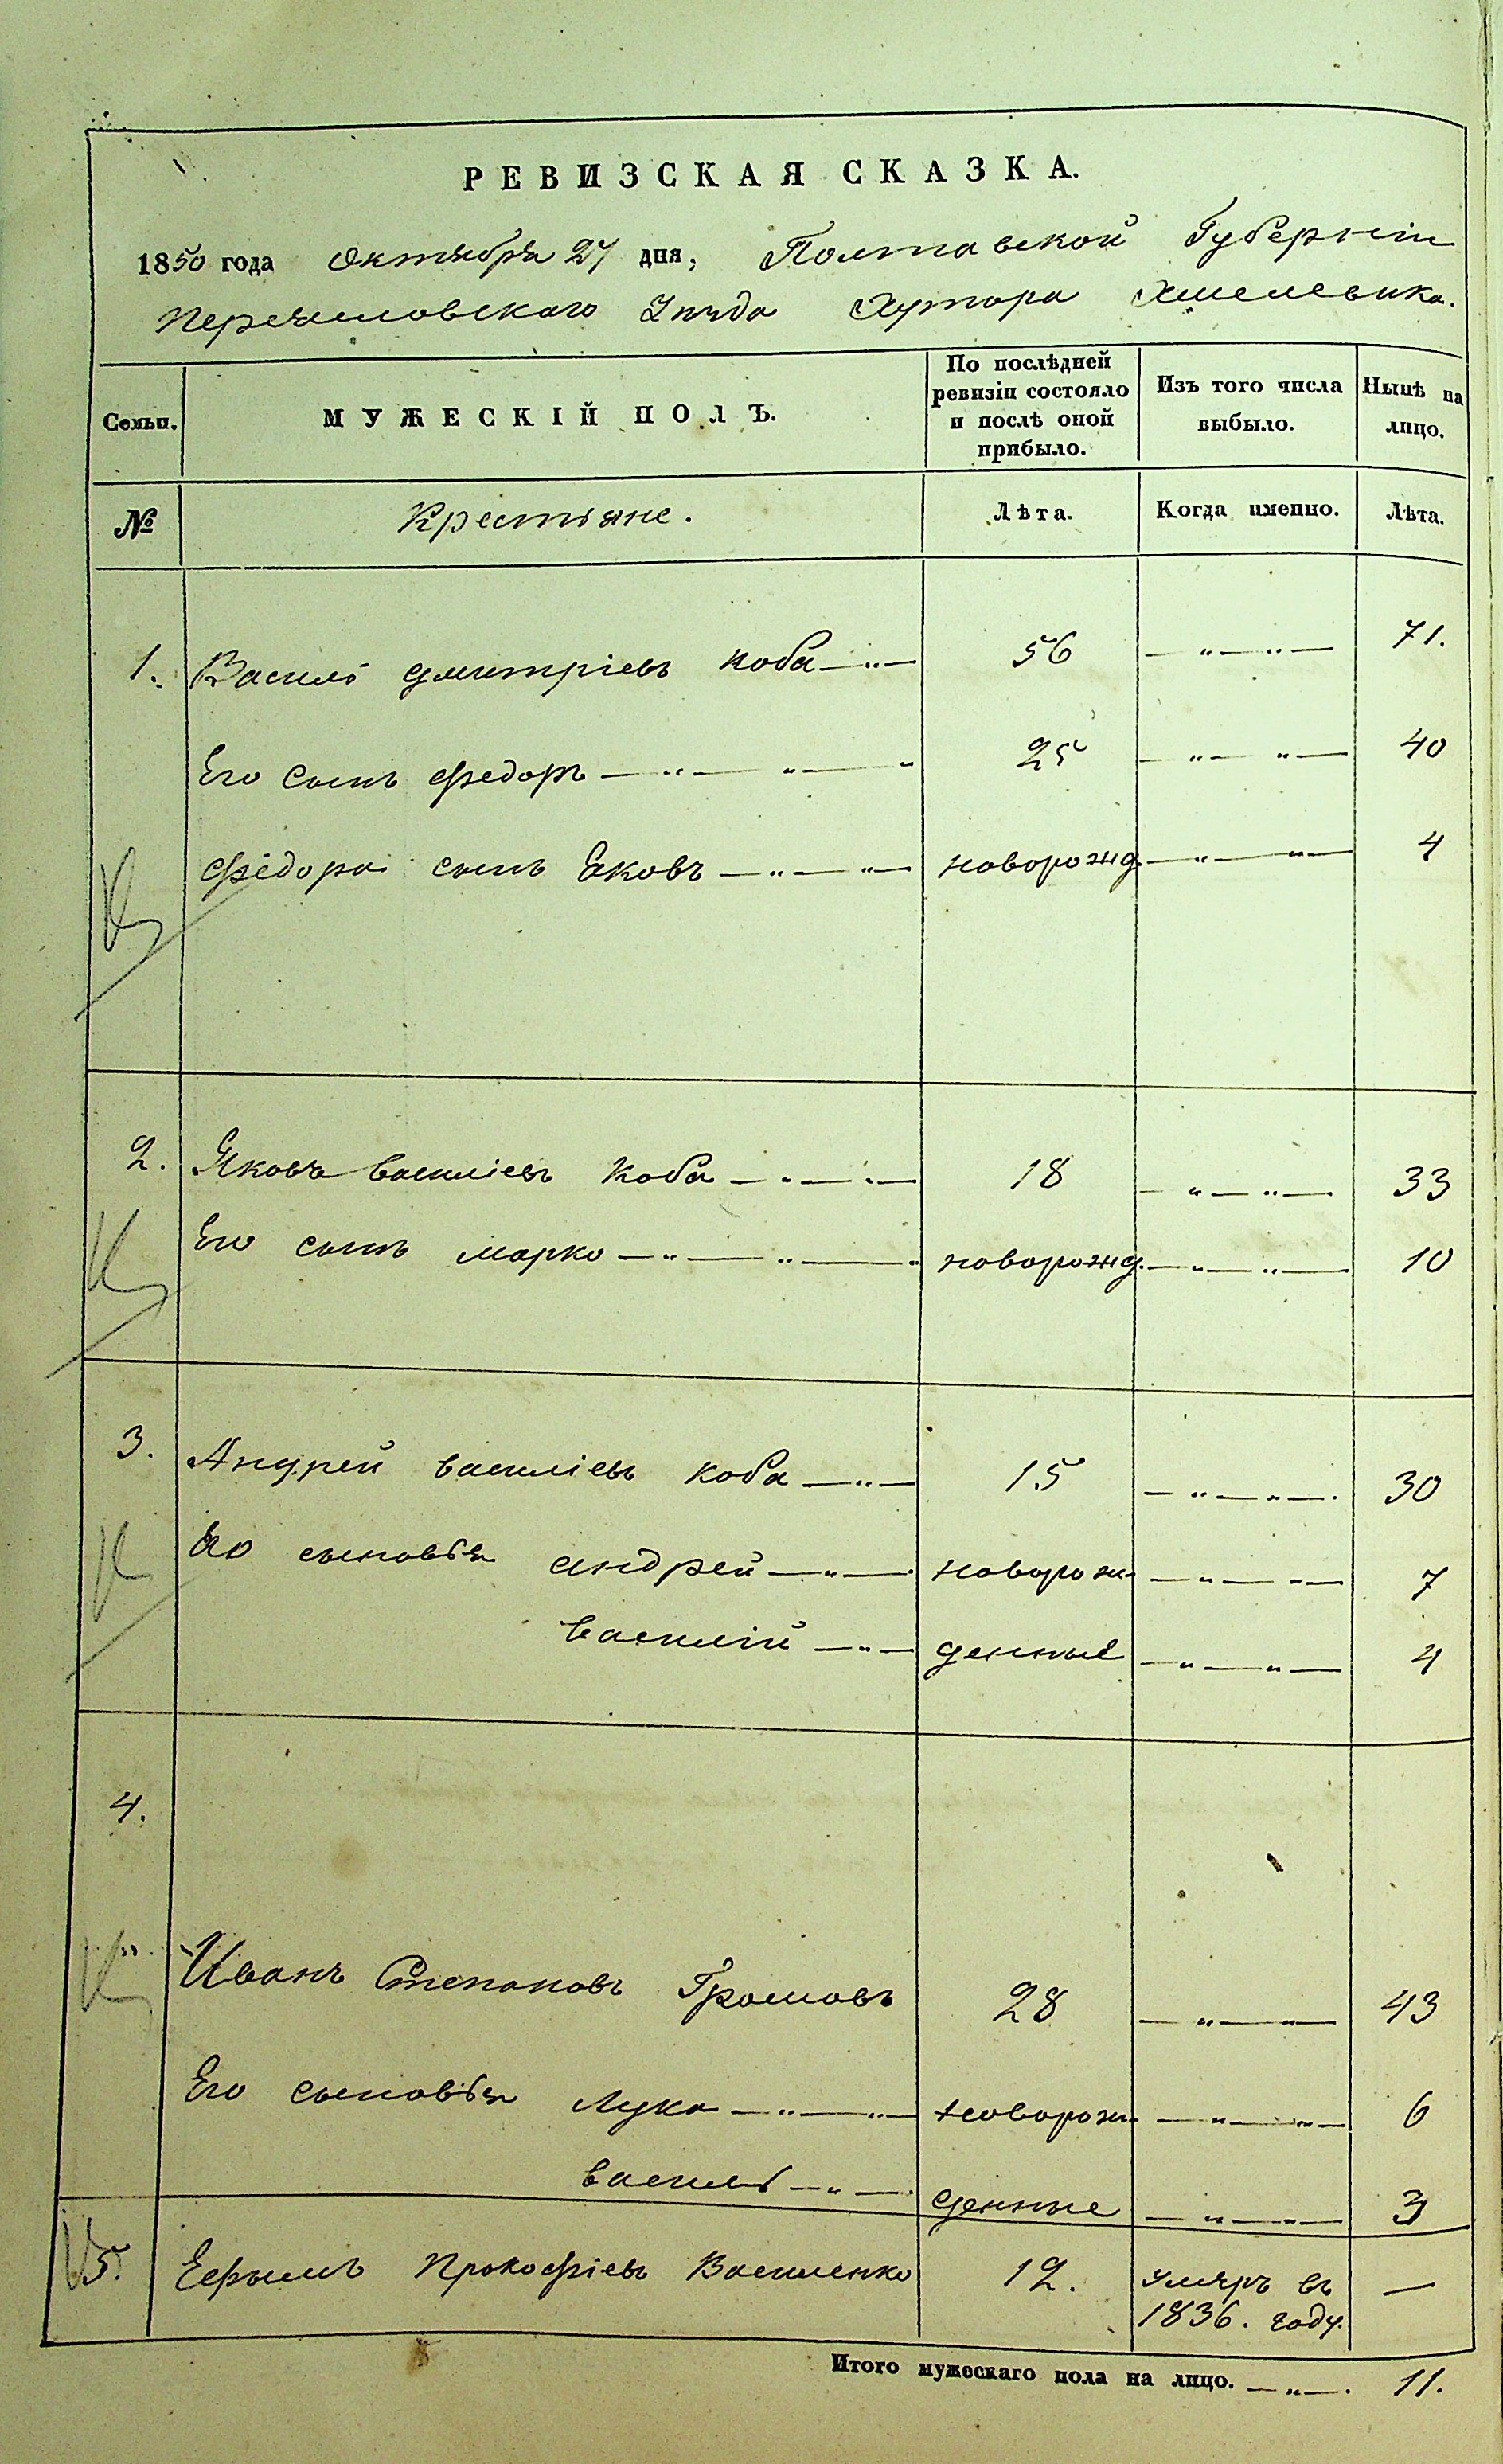 РЕВИЗСКАЯ СКАЗКА.
1850 года октября 27 дня, Полтавской Губерніи
Уѣзда Хутора Хмелевика.
Семьи.
МУЖЕСКІЙ ПОЛЪ.
По послѣдней
ревизіи состояло
и послѣ оной
прибыло.
Изъ того числа
выбыло.
Нынѣ на
лицо.
№
Крестьяне.
Лѣта.
Когда именно.
Лѣта.
1. Василь дмитріевъ Коба 56 71.
Его сынъ Федоръ 25 40
Федора сынъ Ековъ новорожд. 4
2. Яковъ василіевъ Коба 18 33
Его сынъ марко новорожд. 10
3. Андрей василіевъ коба 15 30
Его сыновья андрей новорож- 7
василій денные 4
4.
Иванъ Степановъ Громовъ 28 43
Его сыновья лука новорож- 6
василь денные 3
5. Ефымъ Прокофіевъ Василенко 12. умеръ въ —
1836. году.
Итого мужескаго пола на лицо. 11.